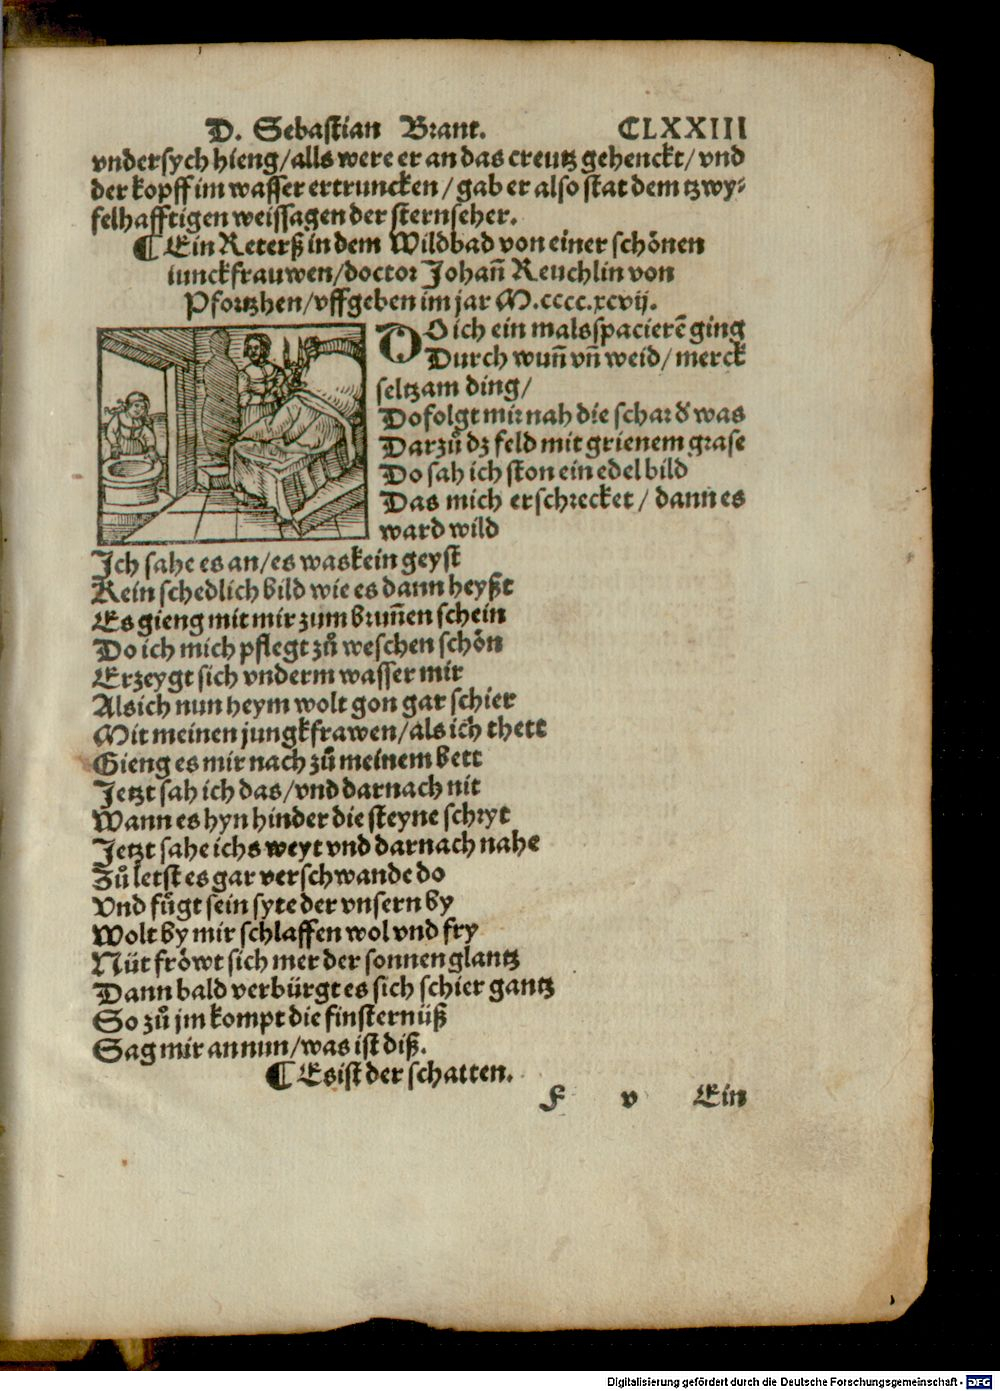 D. Sebastian Brant. CLXXIII
vndersych hieng/alls were er an das creutz gehenckt/vnd
der kopff im wasser ertruncken/gab er also stat dem tzwy⸗
felhafftigen weissagen der sternseher.
¶ Ein Reterß in dem Wildbad von einer schönen
iunckfrauwen/doctor Johañ Reuchlin von
Pfortzhen/vffgeben im jar M.cccc.xcvij.
DO ich ein mals spacierē ging
Durch wuñ vñ weid/merck
seltzam ding/
Do folgt mir nah die schar dʾ was
Darzů dz feld mit grienem grase
Do sah ich ston ein edel bild
Das mich erschrecket/dann es
ward wild
Jch sahe es an/es was kein geyst
Kein schedlich bild wie es dann heyßt
Es gieng mit mir zum brun̄en schein
Do ich mich pflegt zů weschen schön
Erzeygt sich vnderm wasser mir
Als ich nun heym wolt gon gar schier
Mit meinen jungkfrawen/als ich thett
Gieng es mir nach zů meinem bett
Jetzt sah ich das/vnd darnach nit
Wann es hyn hinder die steyne schryt
Jetzt sahe ichs weyt vnd darnach nahe
Zů letst es gar verschwande do
Vnd fůgt sein syte der vnsern by
Wolt by mir schlaffen wol vnd fry
Nüt fröwt sich mer der sonnen glantz
Dann bald verbürgt es sich schier gantz
So zů jm kompt die finsternüß
Sag mir an nun/was ist diß.
¶ Es ist der schatten.
F v Ein
Digitalisierung gefördert durch die Deutsche Forschungsgemeinschaft - DFG